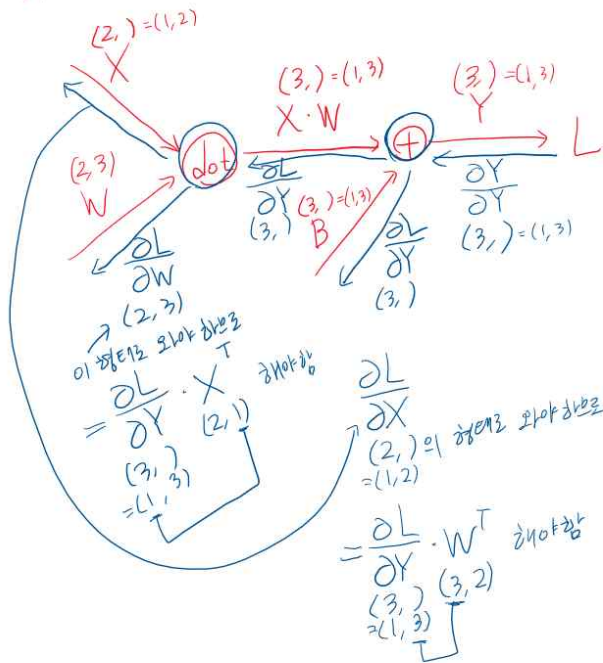 (2,) = (1,2)
X
(2,3)
W
dot
(3,) = (1,3)
X · W
+
(3,) = (1,3)
Y
L
∂L/∂Y
(3,)
(3,) = (1,3)
B
∂L/∂Y
(3,)
∂Y/∂Y
(3,) = (1,3)
∂L/∂W
(2,3)
이 형태로 와야 하므로
= ∂L/∂Y · X^T 해야함
(2,1)
(3,)
= (1,3)
∂L/∂X
(2,)의 형태로 와야 하므로
= (1,2)
= ∂L/∂Y · W^T 해야함
(3,) (3,2)
= (1,3)